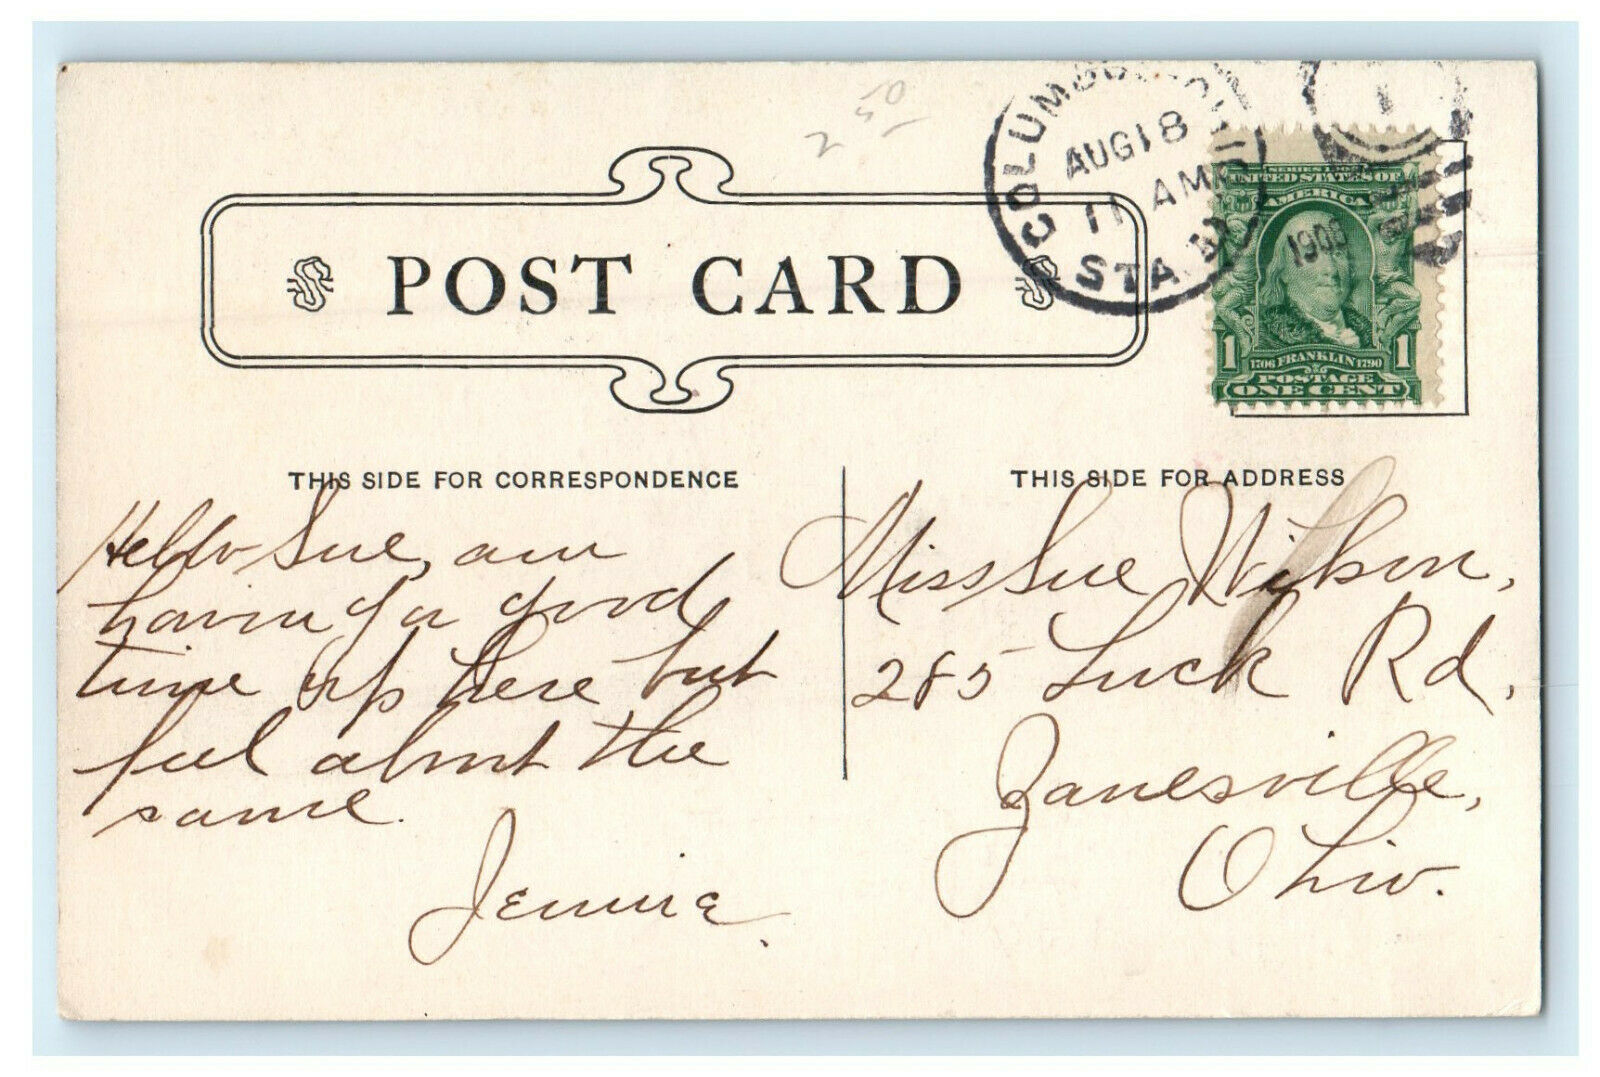 2 50
COLUMBUS, OHIO
AUG 18
11 AM
STA.
1908
1
SERIES 1902
UNITED STATES OF
AMERICA
1 1
1706 FRANKLIN 1790
POSTAGE
ONE CENT
POST CARD
THIS SIDE FOR CORRESPONDENCE
Hello Sue, am
having a good
time up here but
feel about the
same.
Jennie.
THIS SIDE FOR ADDRESS
Miss Sue Wilson,
285 Luck Rd,
Zanesville,
Ohio.